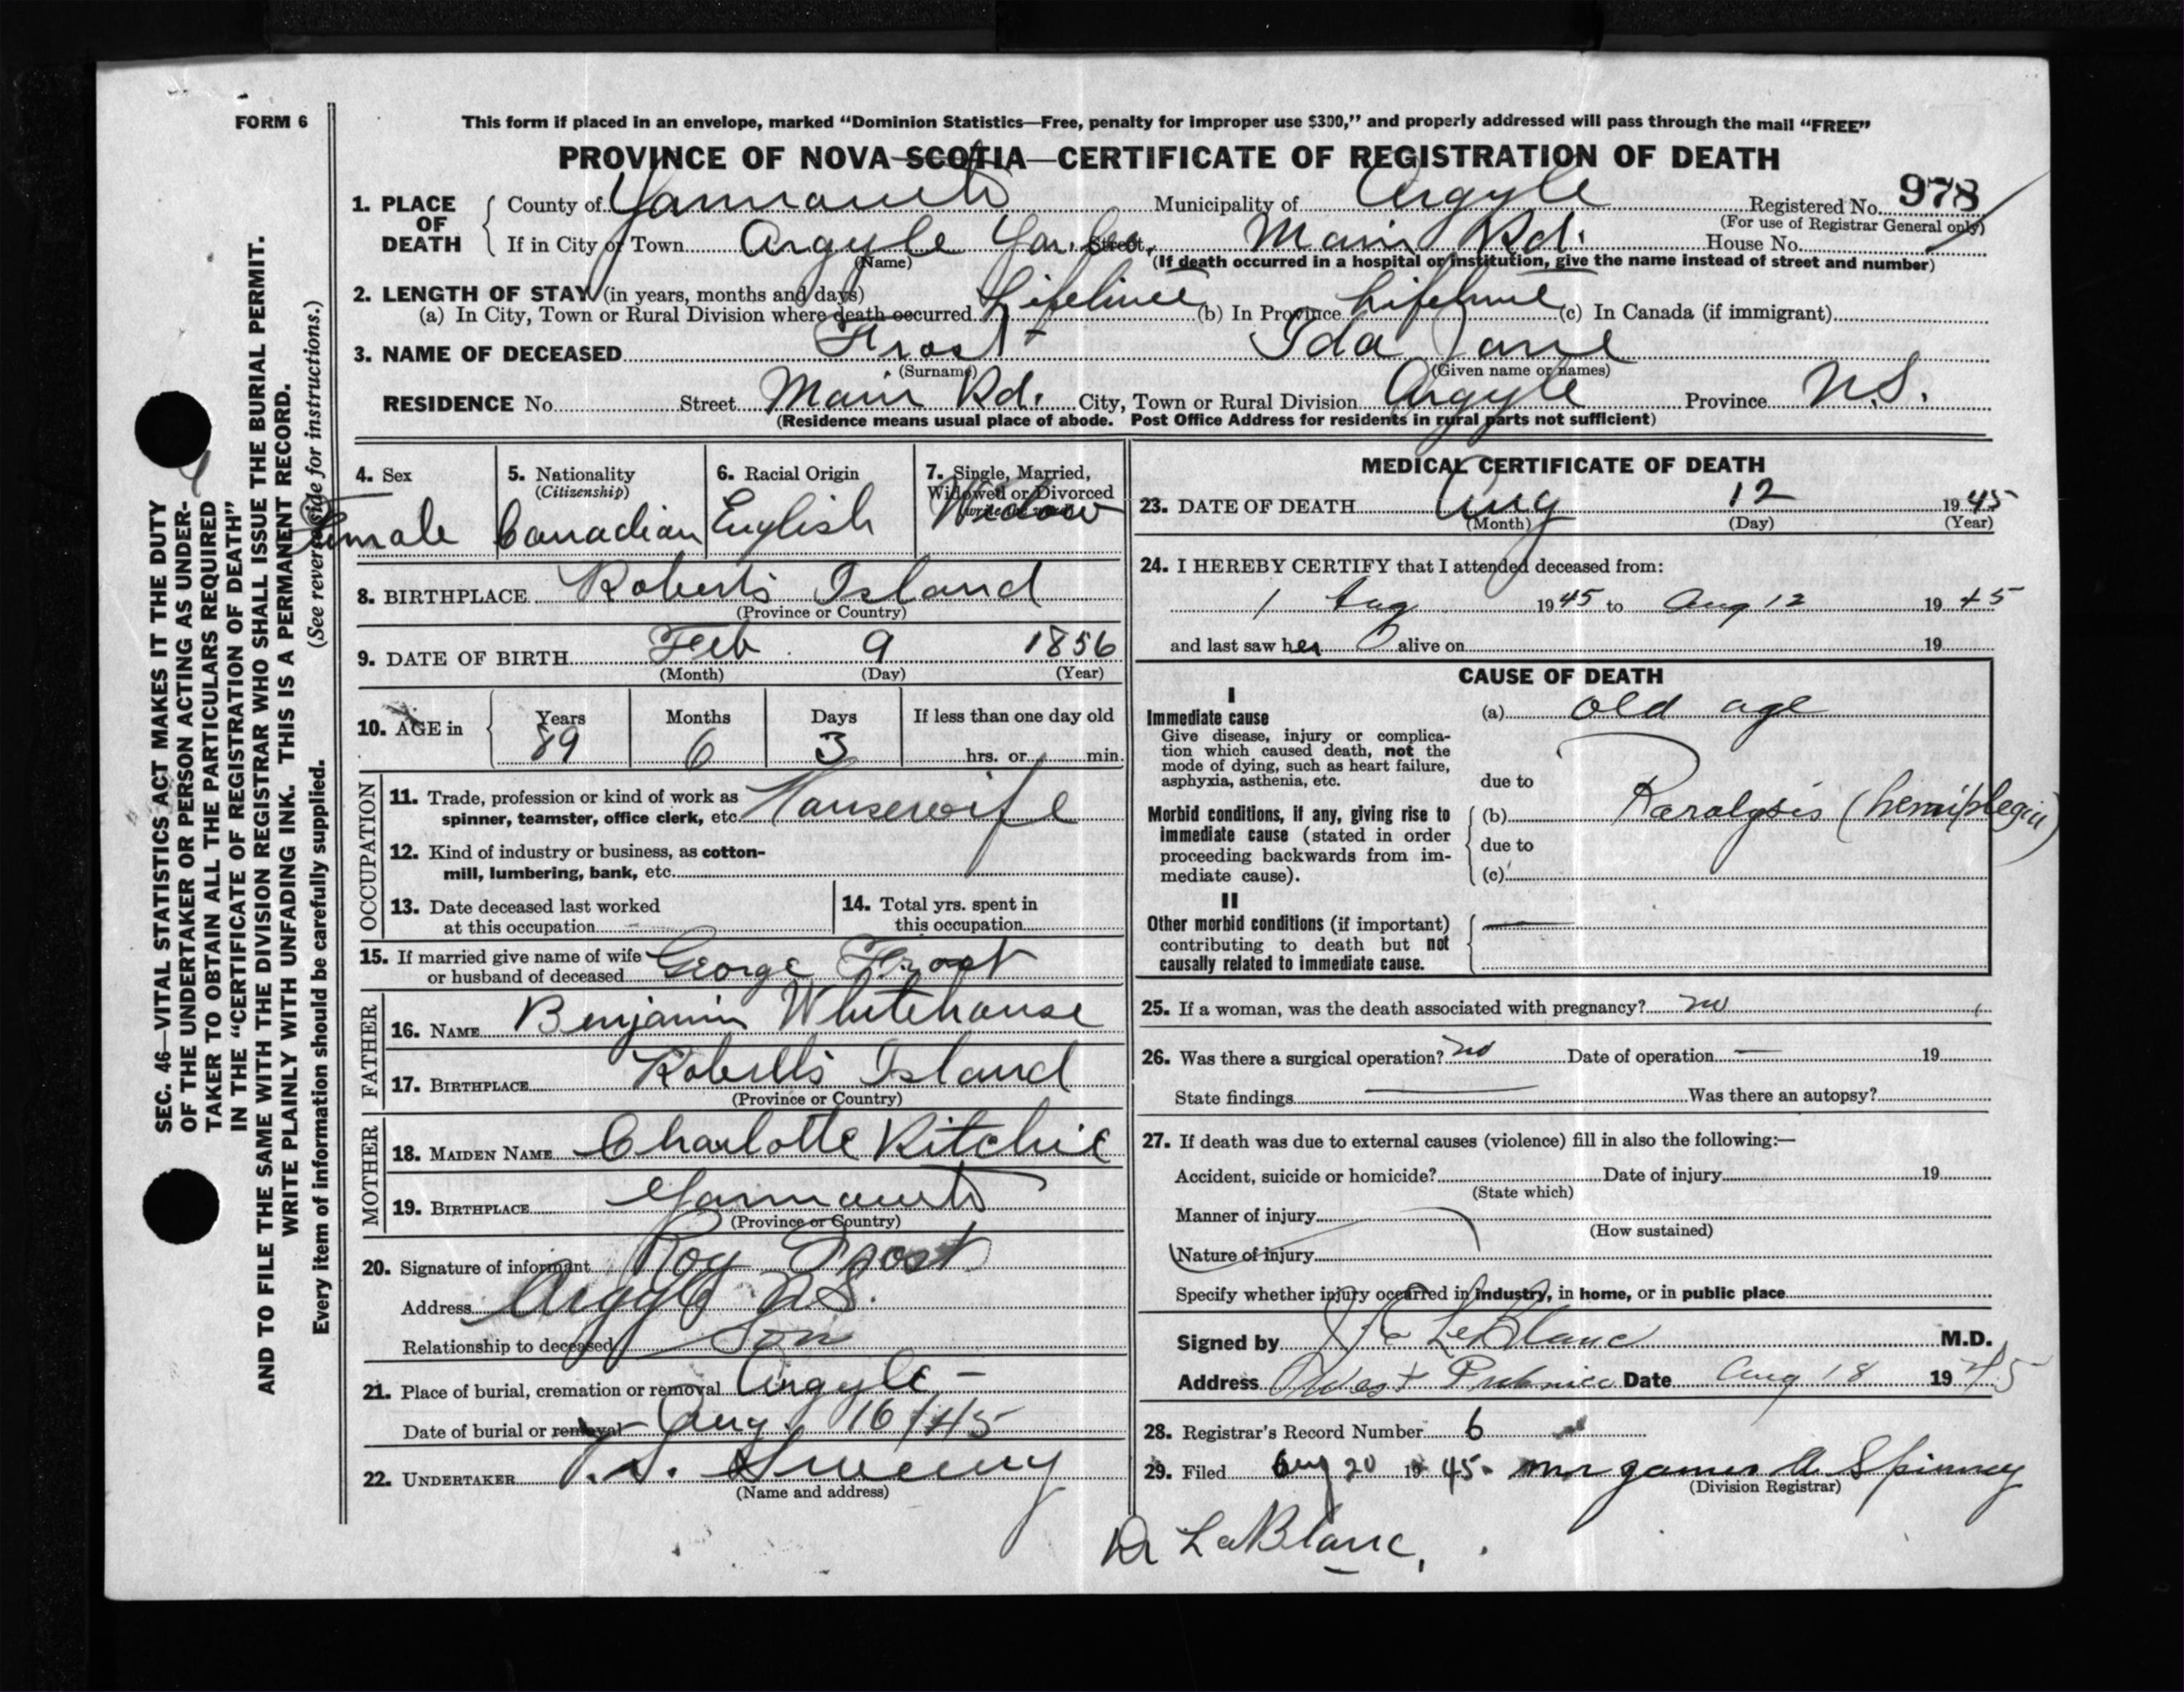 FORM 6
This form if placed in an envelope, marked “Dominion Statistics—Free, penalty for improper use $300,” and properly addressed will pass through the mail “FREE”
PROVINCE OF NOVA SCOTIA—CERTIFICATE OF REGISTRATION OF DEATH
1. PLACE OF DEATH
County of Yarmouth Municipality of Argyle Registered No. 978
(For use of Registrar General only)
If in City or Town Argyle Yar. Co. Street, Main Rd. House No.
(Name) (If death occurred in a hospital or institution, give the name instead of street and number)
2. LENGTH OF STAY (in years, months and days)
(a) In City, Town or Rural Division where death occurred Lifetime (b) In Province Lifetime (c) In Canada (if immigrant)
3. NAME OF DECEASED Frost Ida Jane
(Surname) (Given name or names)
RESIDENCE No. Street Main Rd. City, Town or Rural Division Argyle Province N.S.
(Residence means usual place of abode. Post Office Address for residents in rural parts not sufficient)
4. Sex Female
5. Nationality (Citizenship) Canadian
6. Racial Origin English
7. Single, Married, Widowed or Divorced Widow
8. BIRTHPLACE Roberts Island
(Province or Country)
9. DATE OF BIRTH Feb 9 1856
(Month) (Day) (Year)
10. AGE in Years 89 Months 6 Days 3 If less than one day old hrs. or min.
OCCUPATION
11. Trade, profession or kind of work as
spinner, teamster, office clerk, etc. Housewife
12. Kind of industry or business, as cotton-
mill, lumbering, bank, etc.
13. Date deceased last worked
at this occupation
14. Total yrs. spent in
this occupation
15. If married give name of wife
or husband of deceased George Frost
FATHER
16. NAME Benjamin Whitehouse
17. BIRTHPLACE Roberts Island
(Province or Country)
MOTHER
18. MAIDEN NAME Charlotte Ritchie
19. BIRTHPLACE Yarmouth
(Province or Country)
20. Signature of informant Roy Frost
Address Argyle N.S.
Relationship to deceased Son
21. Place of burial, cremation or removal Argyle
Date of burial or removal Aug 16/45
22. UNDERTAKER Sweeny
(Name and address)
MEDICAL CERTIFICATE OF DEATH
23. DATE OF DEATH Aug 12 1945
(Month) (Day) (Year)
24. I HEREBY CERTIFY that I attended deceased from:
1 Aug 1945 to Aug 12 1945
and last saw her alive on 19
CAUSE OF DEATH
I
Immediate cause (a) old age
Give disease, injury or complica-
tion which caused death, not the
mode of dying, such as heart failure,
asphyxia, asthenia, etc.
due to
Morbid conditions, if any, giving rise to (b) Paralysis (hemiplegia)
immediate cause (stated in order
due to
proceeding backwards from im-
mediate cause). (c)
II
Other morbid conditions (if important)
contributing to death but not
causally related to immediate cause.
25. If a woman, was the death associated with pregnancy? no
26. Was there a surgical operation? no Date of operation — 19
State findings Was there an autopsy?
27. If death was due to external causes (violence) fill in also the following:—
Accident, suicide or homicide? Date of injury 19
(State which)
Manner of injury
(How sustained)
Nature of injury
Specify whether injury occurred in industry, in home, or in public place
Signed by LeBlanc M.D.
Address West Pubnico Date Aug 18 1945
28. Registrar's Record Number 6
29. Filed Aug 20 1945. Mrs James A. Spinney
(Division Registrar)
Dr LeBlanc.
SEC. 46—VITAL STATISTICS ACT MAKES IT THE DUTY
OF THE UNDERTAKER OR PERSON ACTING AS UNDER-
TAKER TO OBTAIN ALL THE PARTICULARS REQUIRED
IN THE “CERTIFICATE OF REGISTRATION OF DEATH”
AND TO FILE THE SAME WITH THE DIVISION REGISTRAR WHO SHALL ISSUE THE BURIAL PERMIT.
WRITE PLAINLY WITH UNFADING INK. THIS IS A PERMANENT RECORD.
Every item of information should be carefully supplied. (See reverse side for instructions.)